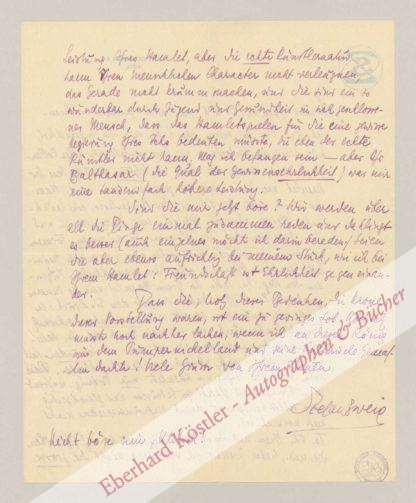 Leistung Ihres Hamlet, aber die echte Künstlernatur
kann Ihren menschlichen Character nicht verleugnen,
das Gerade nicht krumm machen, und Sie sind ein so
wunderbar durch Jugend und Gesundheit in sich geschlosse-
ner Mensch, dass das Hamletspielen für Sie eine
Ihres bedeuten müsste, die eben der echte
Künstler nicht kann. Mag ich befangen sein – aber Ihr
Balthasar (die Qual der Gewissensehrlichkeit) war mir
eine tausendfach höhere Leistung.
Sind Sie mir jetzt böse? Wir werden über
all die Dinge einmal zusammen reden und da klingt
es besser (auch einzelnes möcht ich darin bereden) seien
Sie aber ebenso aufrichtig bei meinem Stück, wie ich bei
Ihrem Hamlet: Freundschaft ist Ehrlichkeit gegen einan-
der.
Dass Sie, trotz dieser Bedenken,
dieser Vorstellung waren, ist ein zu geringes Lob.
musste noch nachher lachen, wenn ich an diesen König
aus dem und seine
dachte! Viele Grüsse von Ihrem
Stefan Zweig
Nicht böse sein
Eberhard Köstler - Autographen & Bücher